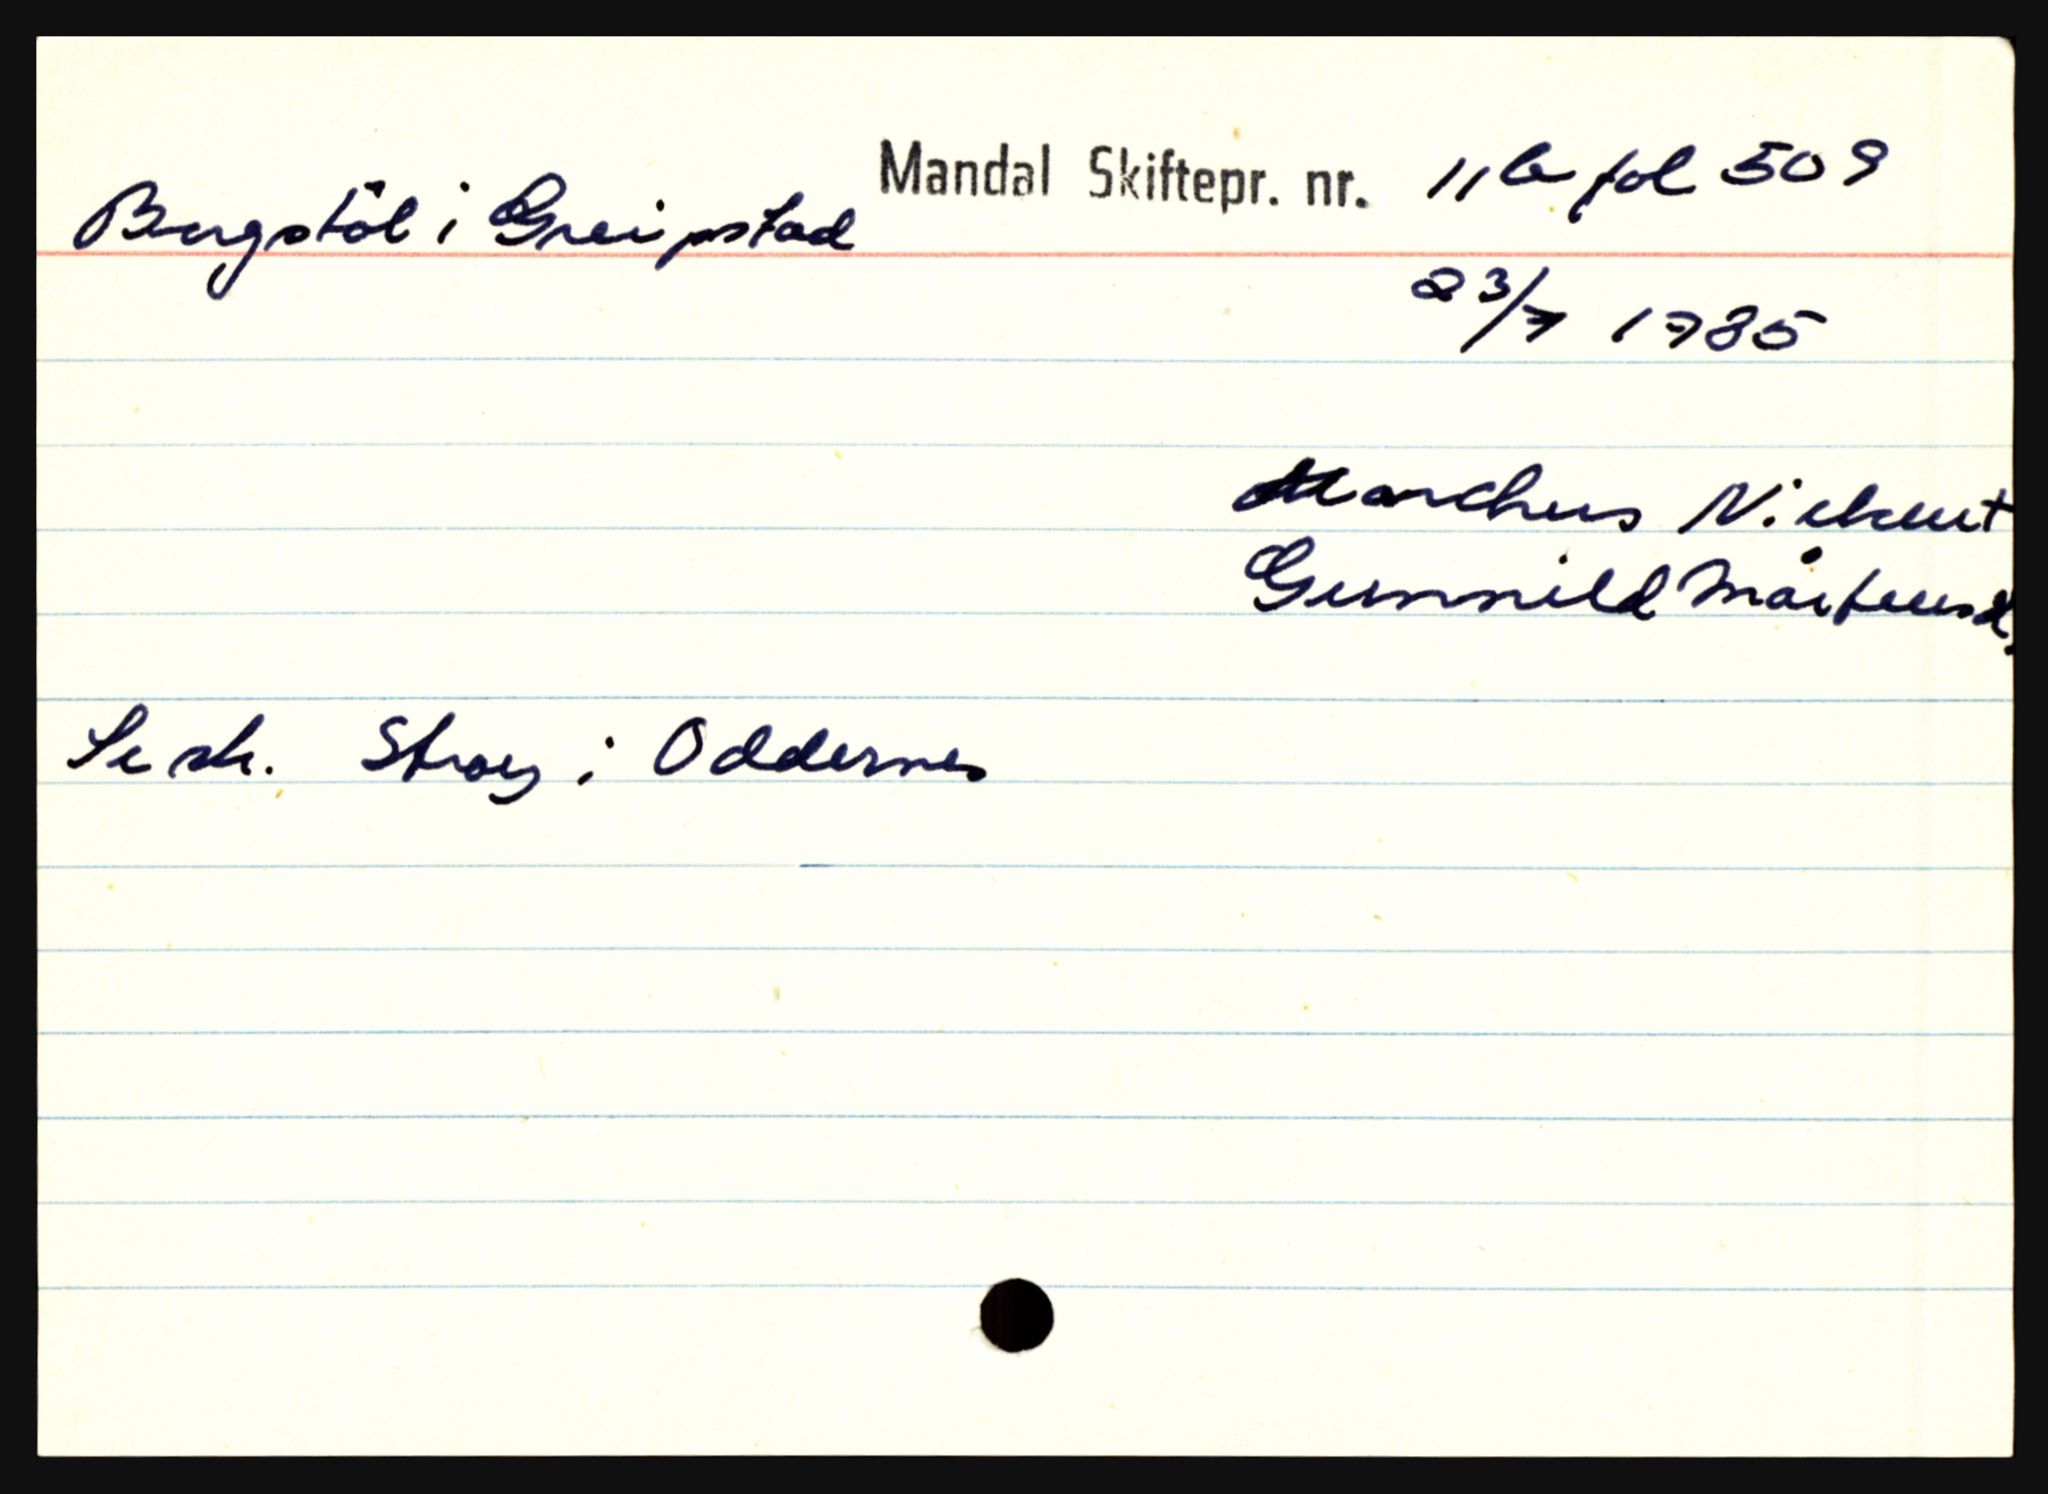 Mandal Skiftepr. nr. 11b fol 509
Bergstöl i Greipstad
23/7 1785
Marchus
Gunnild Mårtensd,
Se sk. Stray i Oddernes